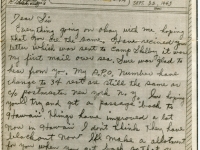 SEPT. 23, 1943
Dear Sis
Everything going on okay with me hoping
that you are the same. I have received your
letter which was sent to Camp Shelby it was
my first mail over sea. Sure was glad to
hear from you. My A.P.O. Number have
change to 34 rest are still the same as in
c/o postmaster new york N.Y.
you'll try and get a passage back to
Hawaii. Things have improved a lot
now in Hawaii I don't think they have
blackout now. I'll make a allotment
for you when